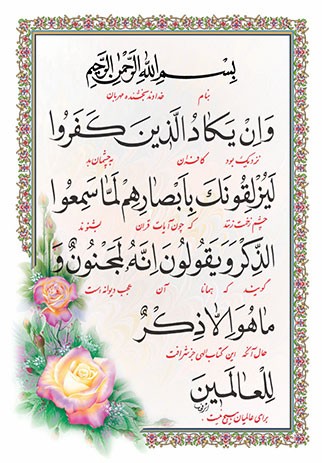 بسم الله الرحمن الرحیم
بنام خداوند بخشنده مهربان
وَاِنْ یَکادُ الَّذینَ کَفَروُا
نزدیک بود کافران به چشمان بد
لَیُزْلِقوُنَکَ بِاَبْصارِهِمْ لَمّا سَمِعوُا
چشم زخمت زنند که چون آیات قرآن بشنوند
الذِّکْرَ وَیَقوُلوُنَ اِنَّهُ لَمَجْنوُنٌ وَ
گویند که همانا آن عجب دیوانه است
ما هُوَ اِلّا ذِکْرٌ
حال آنکه این کتاب الهی جز شرافت
لِلْعالَمینَ
برای عالمیان هیچ نیست